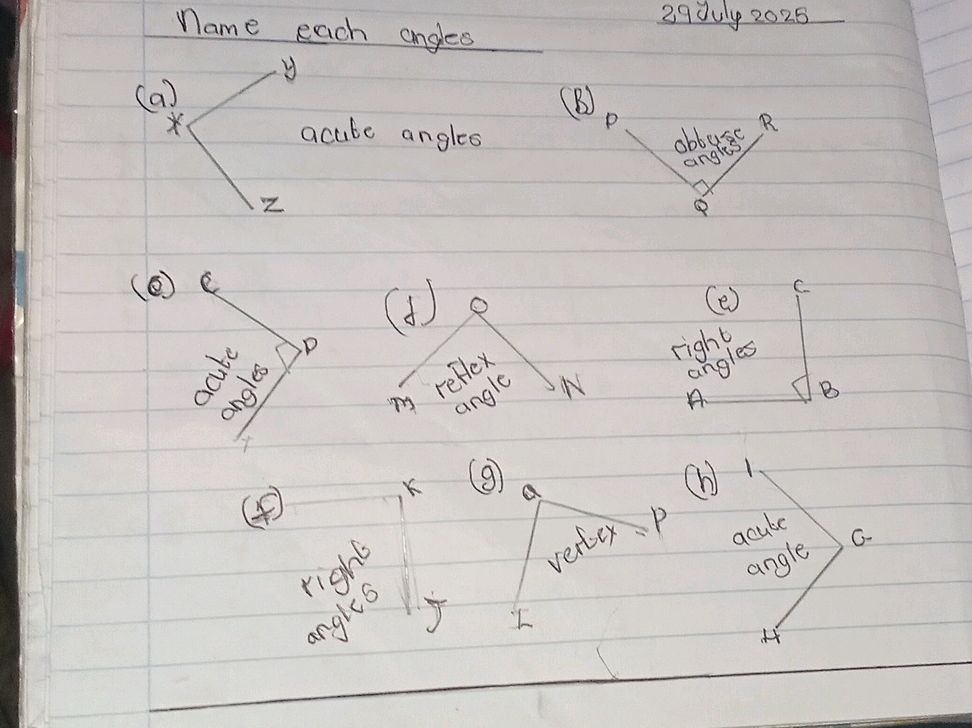 29 July 2025
Name each angles
(a)
y
X
acute angles
Z
(B)
P
R
obtuse
angles
Q
(c)
C
D
acute
angles
(d)
O
reflex
angle
M
N
(e)
C
right
angles
A
B
(f)
K
right
angles
J
(g)
Q
P
vertex
L
(h)
I
acute
angle
G
H